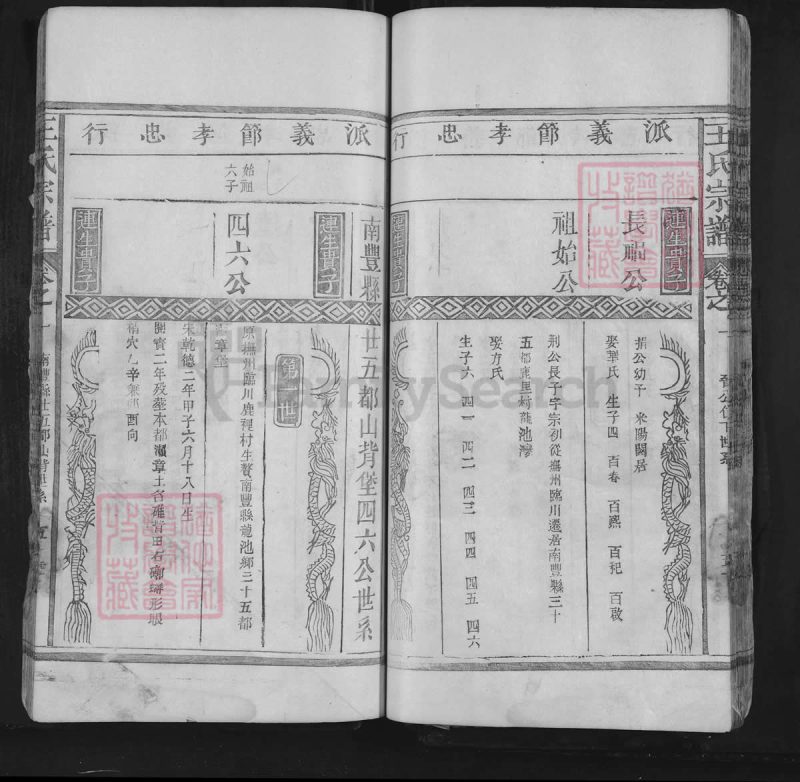 王氏宗譜
卷之一
派義節孝忠行
連生貴子
長耑公
祖始公
連生貴子
娶華氏 生子四 百春 百熙 百祀 百啟
荆公長子字宗初從撫州臨川遷居南豐縣三十
五都鹿里村龍池灣
娶方氏
生子六 四一 四二 四三 四四 四五 四六
派義節孝忠行
南豐縣廿五都山背堡四六公世系
始祖
六子
連生貴子
四六公
連生貴子
第一世
原撫州臨川鹿裡村生贅南豐縣龍池鄉三十五都
宋乾德二年甲子六月十八日生
開寶二年歿塟本都
酉向
王氏宗譜
卷之一
南豐縣廿五都山背世系
FamilySearch